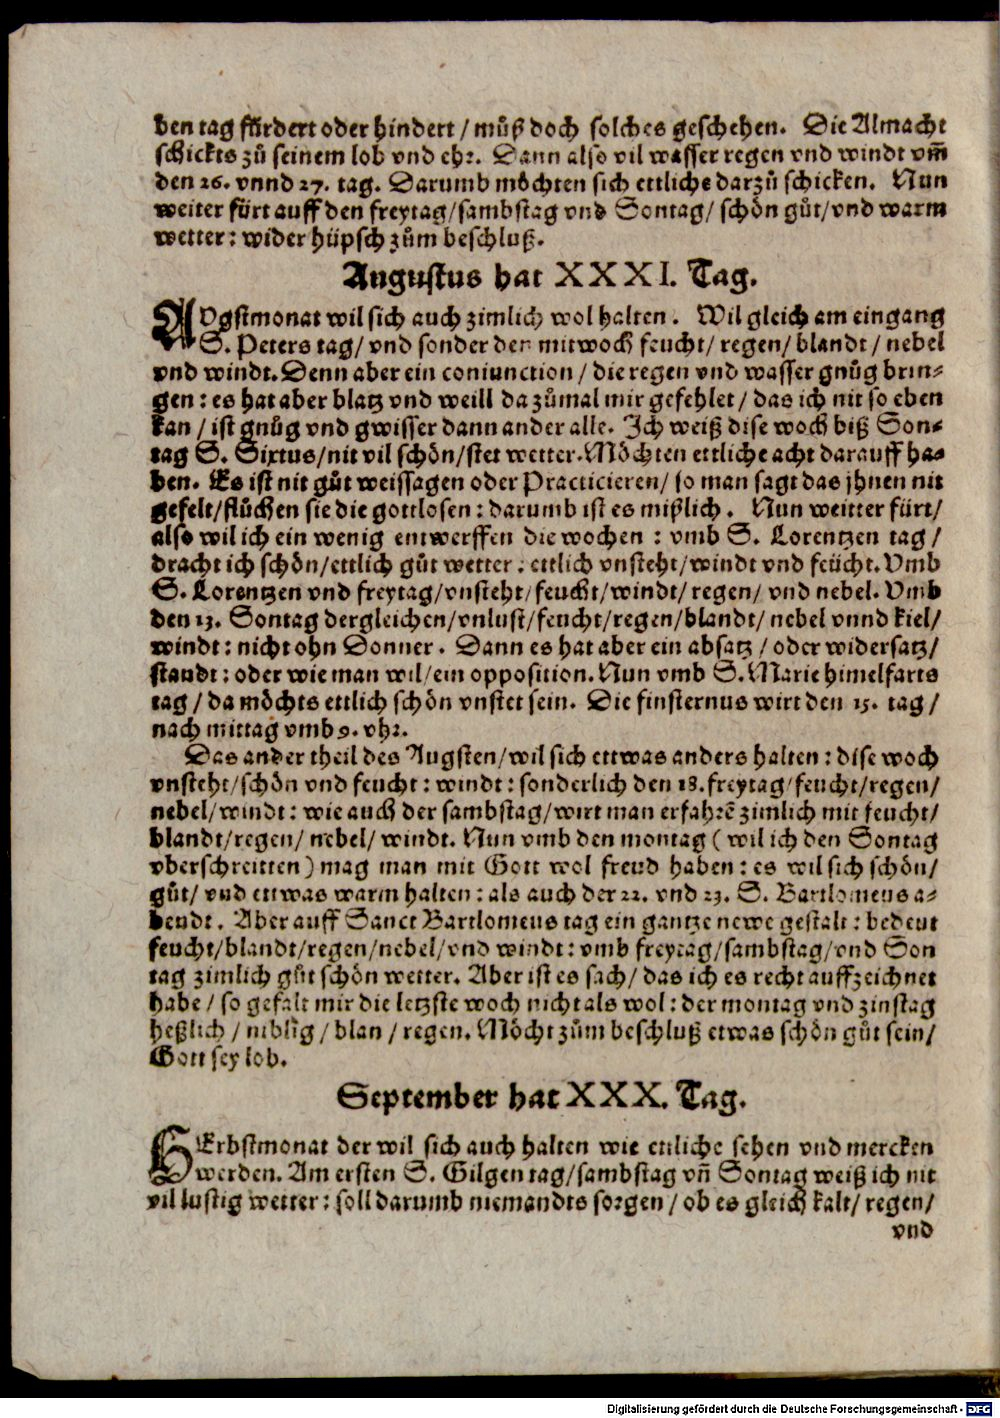 den tag fürdert oder hindert / můß doch solches geschehen. Die Almacht
schickts zů seinem lob vnd ehr. Dann also vil wasser regen vnd windt vm̃
den 26. vnnd 27. tag. Darumb möchten sich ettliche darzů schicken. Nun
weiter fürt auff den freytag/sambstag vnd Sontag/ schön gůt/vnd warm
wetter: wider hüpsch zům beschluß.
Augustus hat XXXI. Tag.
AVgstmonat wil sich auch zimlich wol halten. Wil gleich am eingang
S. Peters tag/ vnd sonder den mitwoch feucht/ regen/ blandt / nebel
vnd windt. Denn aber ein coniunction / die regen vnd wasser gnůg brin-
gen: es hat aber blatz vnd weill da zůmal mir gefehlet / das ich nit so eben
kan / ist gnůg vnd gwisser dann ander alle. Ich weiß dise woch biß Son-
tag S. Sixtus/nit vil schön/stet wetter. Möchten ettliche acht darauff ha-
ben. Es ist nit gůt weissagen oder Practicieren/ so man sagt das jhnen nit
gefelt/flůchen sie die gottlosen: darumb ist es mißlich. Nun weitter fürt/
also wil ich ein wenig entwerffen die wochen: vmb S. Lorentzen tag /
dracht ich schön/ettlich gůt wetter: ettlich vnsteht/windt vnd feücht. Vmb
S. Lorentzen vnd freytag/vnsteht/feucht/windt/ regen/ vnd nebel. Vmb
den 13. Sontag dergleichen/vnlust/feucht/regen/blandt/ nebel vnnd kiel/
windt: nicht ohn Donner. Dann es hat aber ein absatz / oder widersatz/
staudt: oder wie man wil/ein opposition. Nun vmb S. Marie himelfarts
tag / da möchts ettlich schön vnstet sein. Die finsternus wirt den 15. tag /
nach mittag vmb 9. vhr.
Das ander theil des Augsten/wil sich ettwas anders halten: dise woch
vnsteht/schön vnd feucht: windt: sonderlich den 18. freytag/feucht/regen/
nebel/windt: wie auch der sambstag/wirt man erfahrē zimlich mit feucht/
blandt/regen/ nebel/ windt. Nun vmb den montag ( wil ich den Sontag
vberschreitten) mag man mit Gott wol freud haben: es wil sich schön/
gůt/ vnd ettwas warm halten: als auch der 22. vnd 23. S. Bartlomeus a-
bendt. Aber auff Sanct Bartlomeus tag ein gantze newe gestalt: bedeut
feucht/blandt/regen/nebel/vnd windt: vmb freytag/sambstag/vnd Son
tag zimlich gůt schön wetter. Aber ist es sach/ das ich es recht auffzeichnet
habe / so gefalt mir die letzste woch nicht als wol: der montag vnd zinstag
heßlich / niblig / blan / regen. Möcht zům beschluß etwas schön gůt sein/
Gott sey lob.
September hat XXX. Tag.
HErbstmonat der wil sich auch halten wie ettliche sehen vnd mercken
werden. Am ersten S. Gilgen tag/sambstag vñ Sontag weiß ich nit
vil lustig wetter: soll darumb niemandts sorgen / ob es gleich kalt/ regen/
vnd
Digitalisierung gefördert durch die Deutsche Forschungsgemeinschaft - DFG